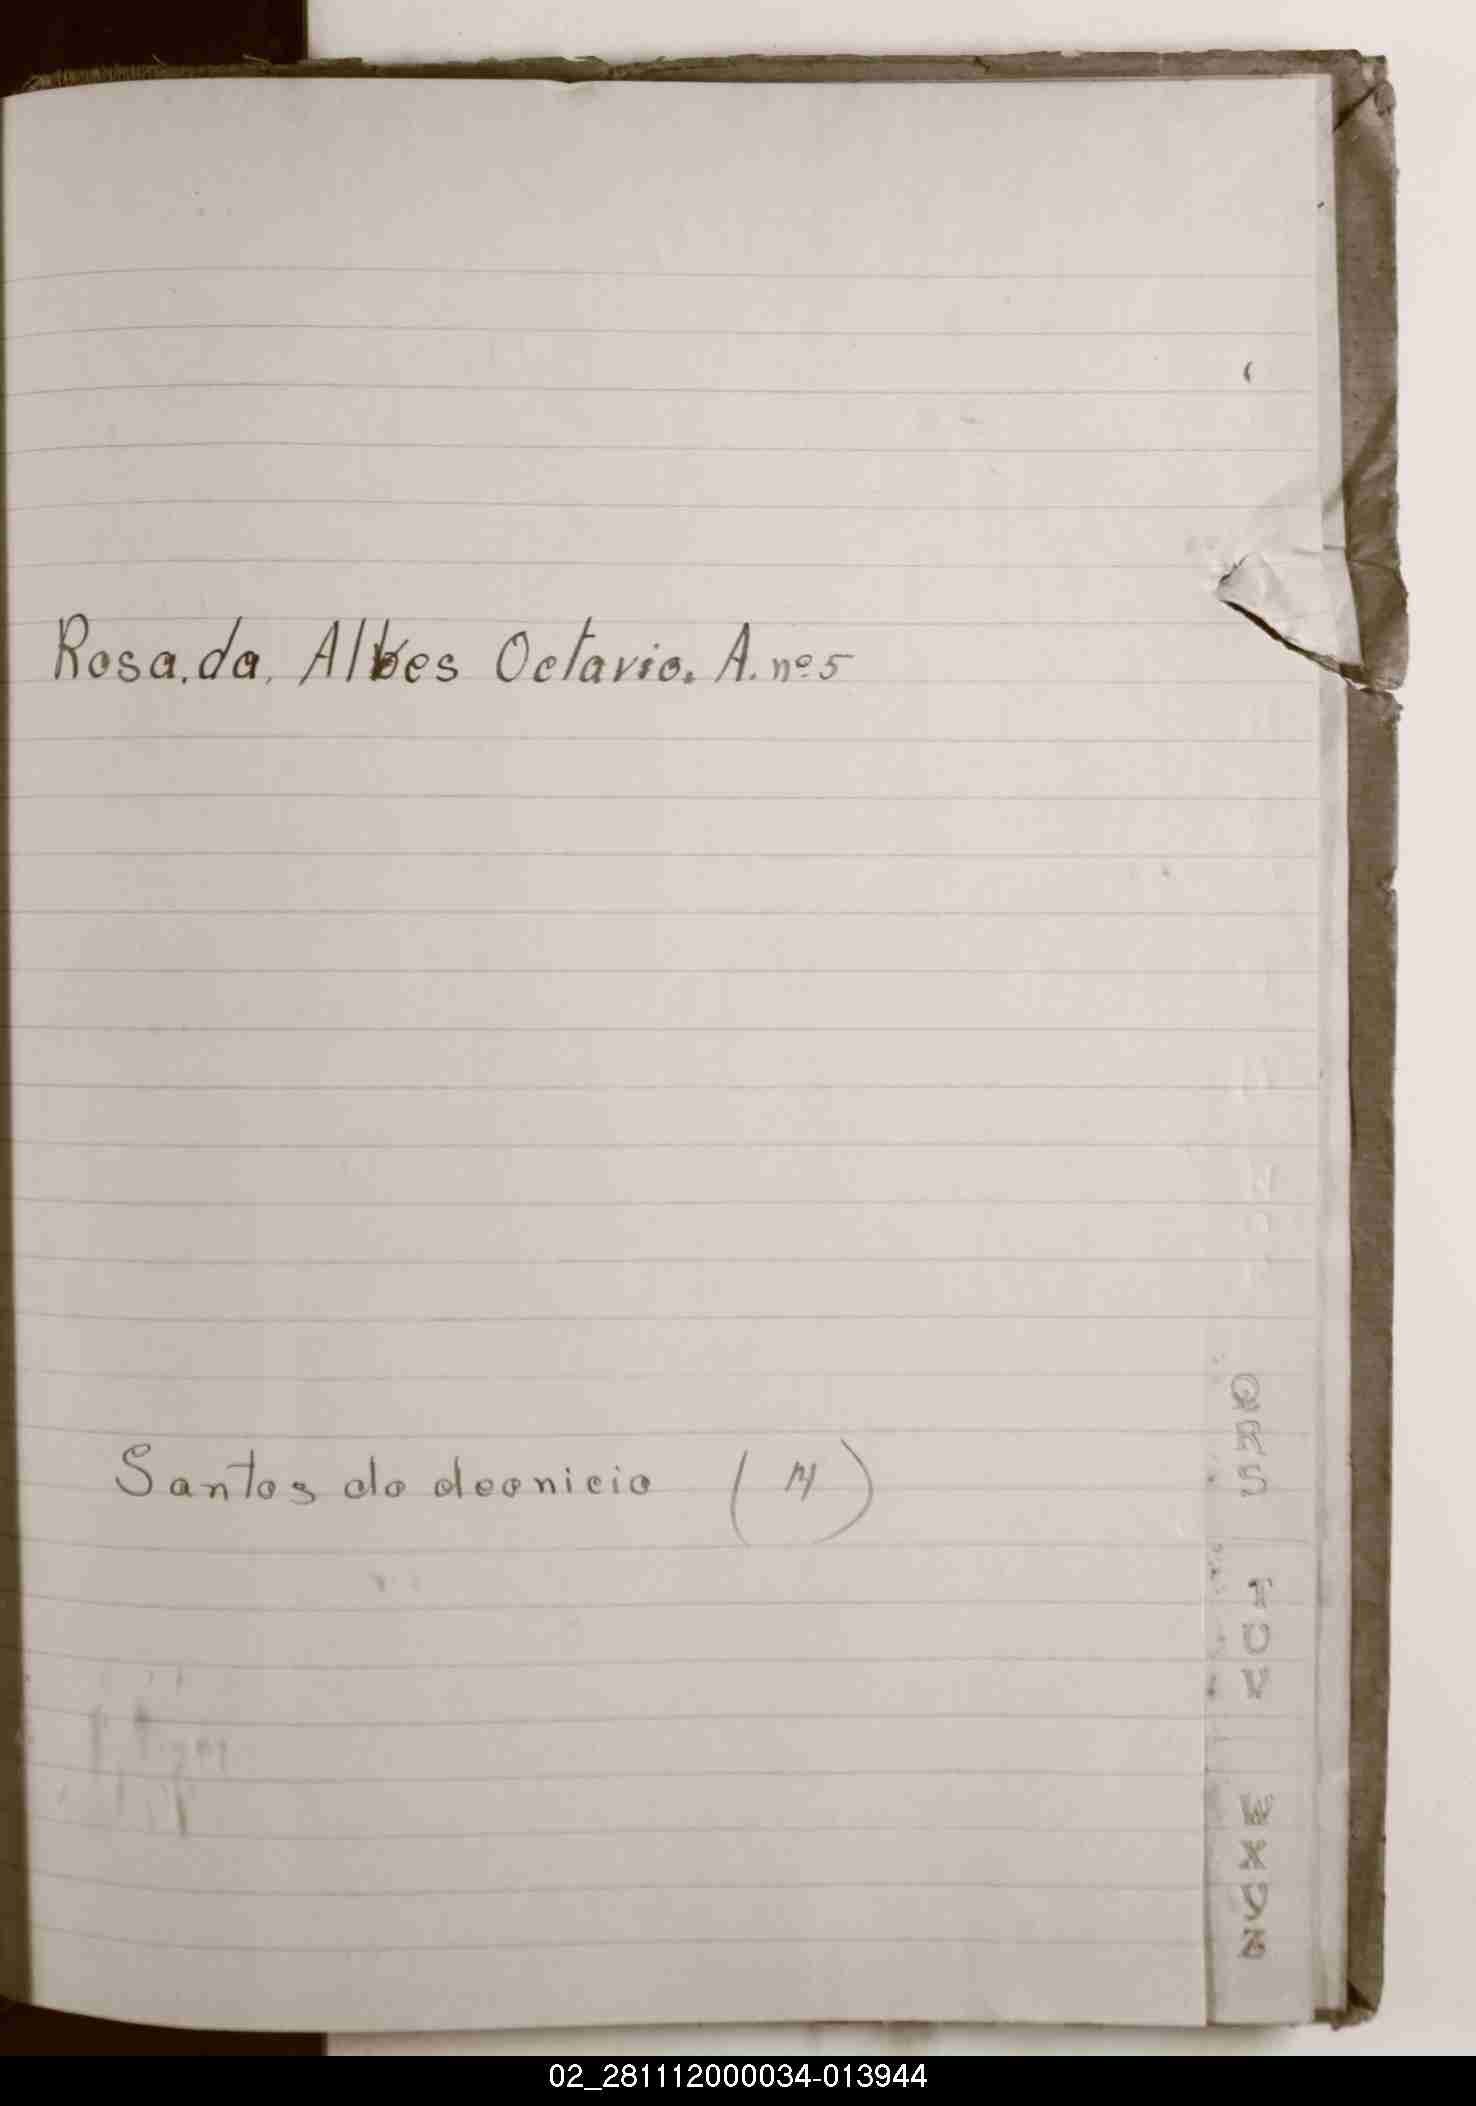 Rosa.da. Albes Octavio. A. nº5
Santos do deonicio (M)
Q
R
S
T
U
V
W
X
Y
Z
02_281112000034-013944